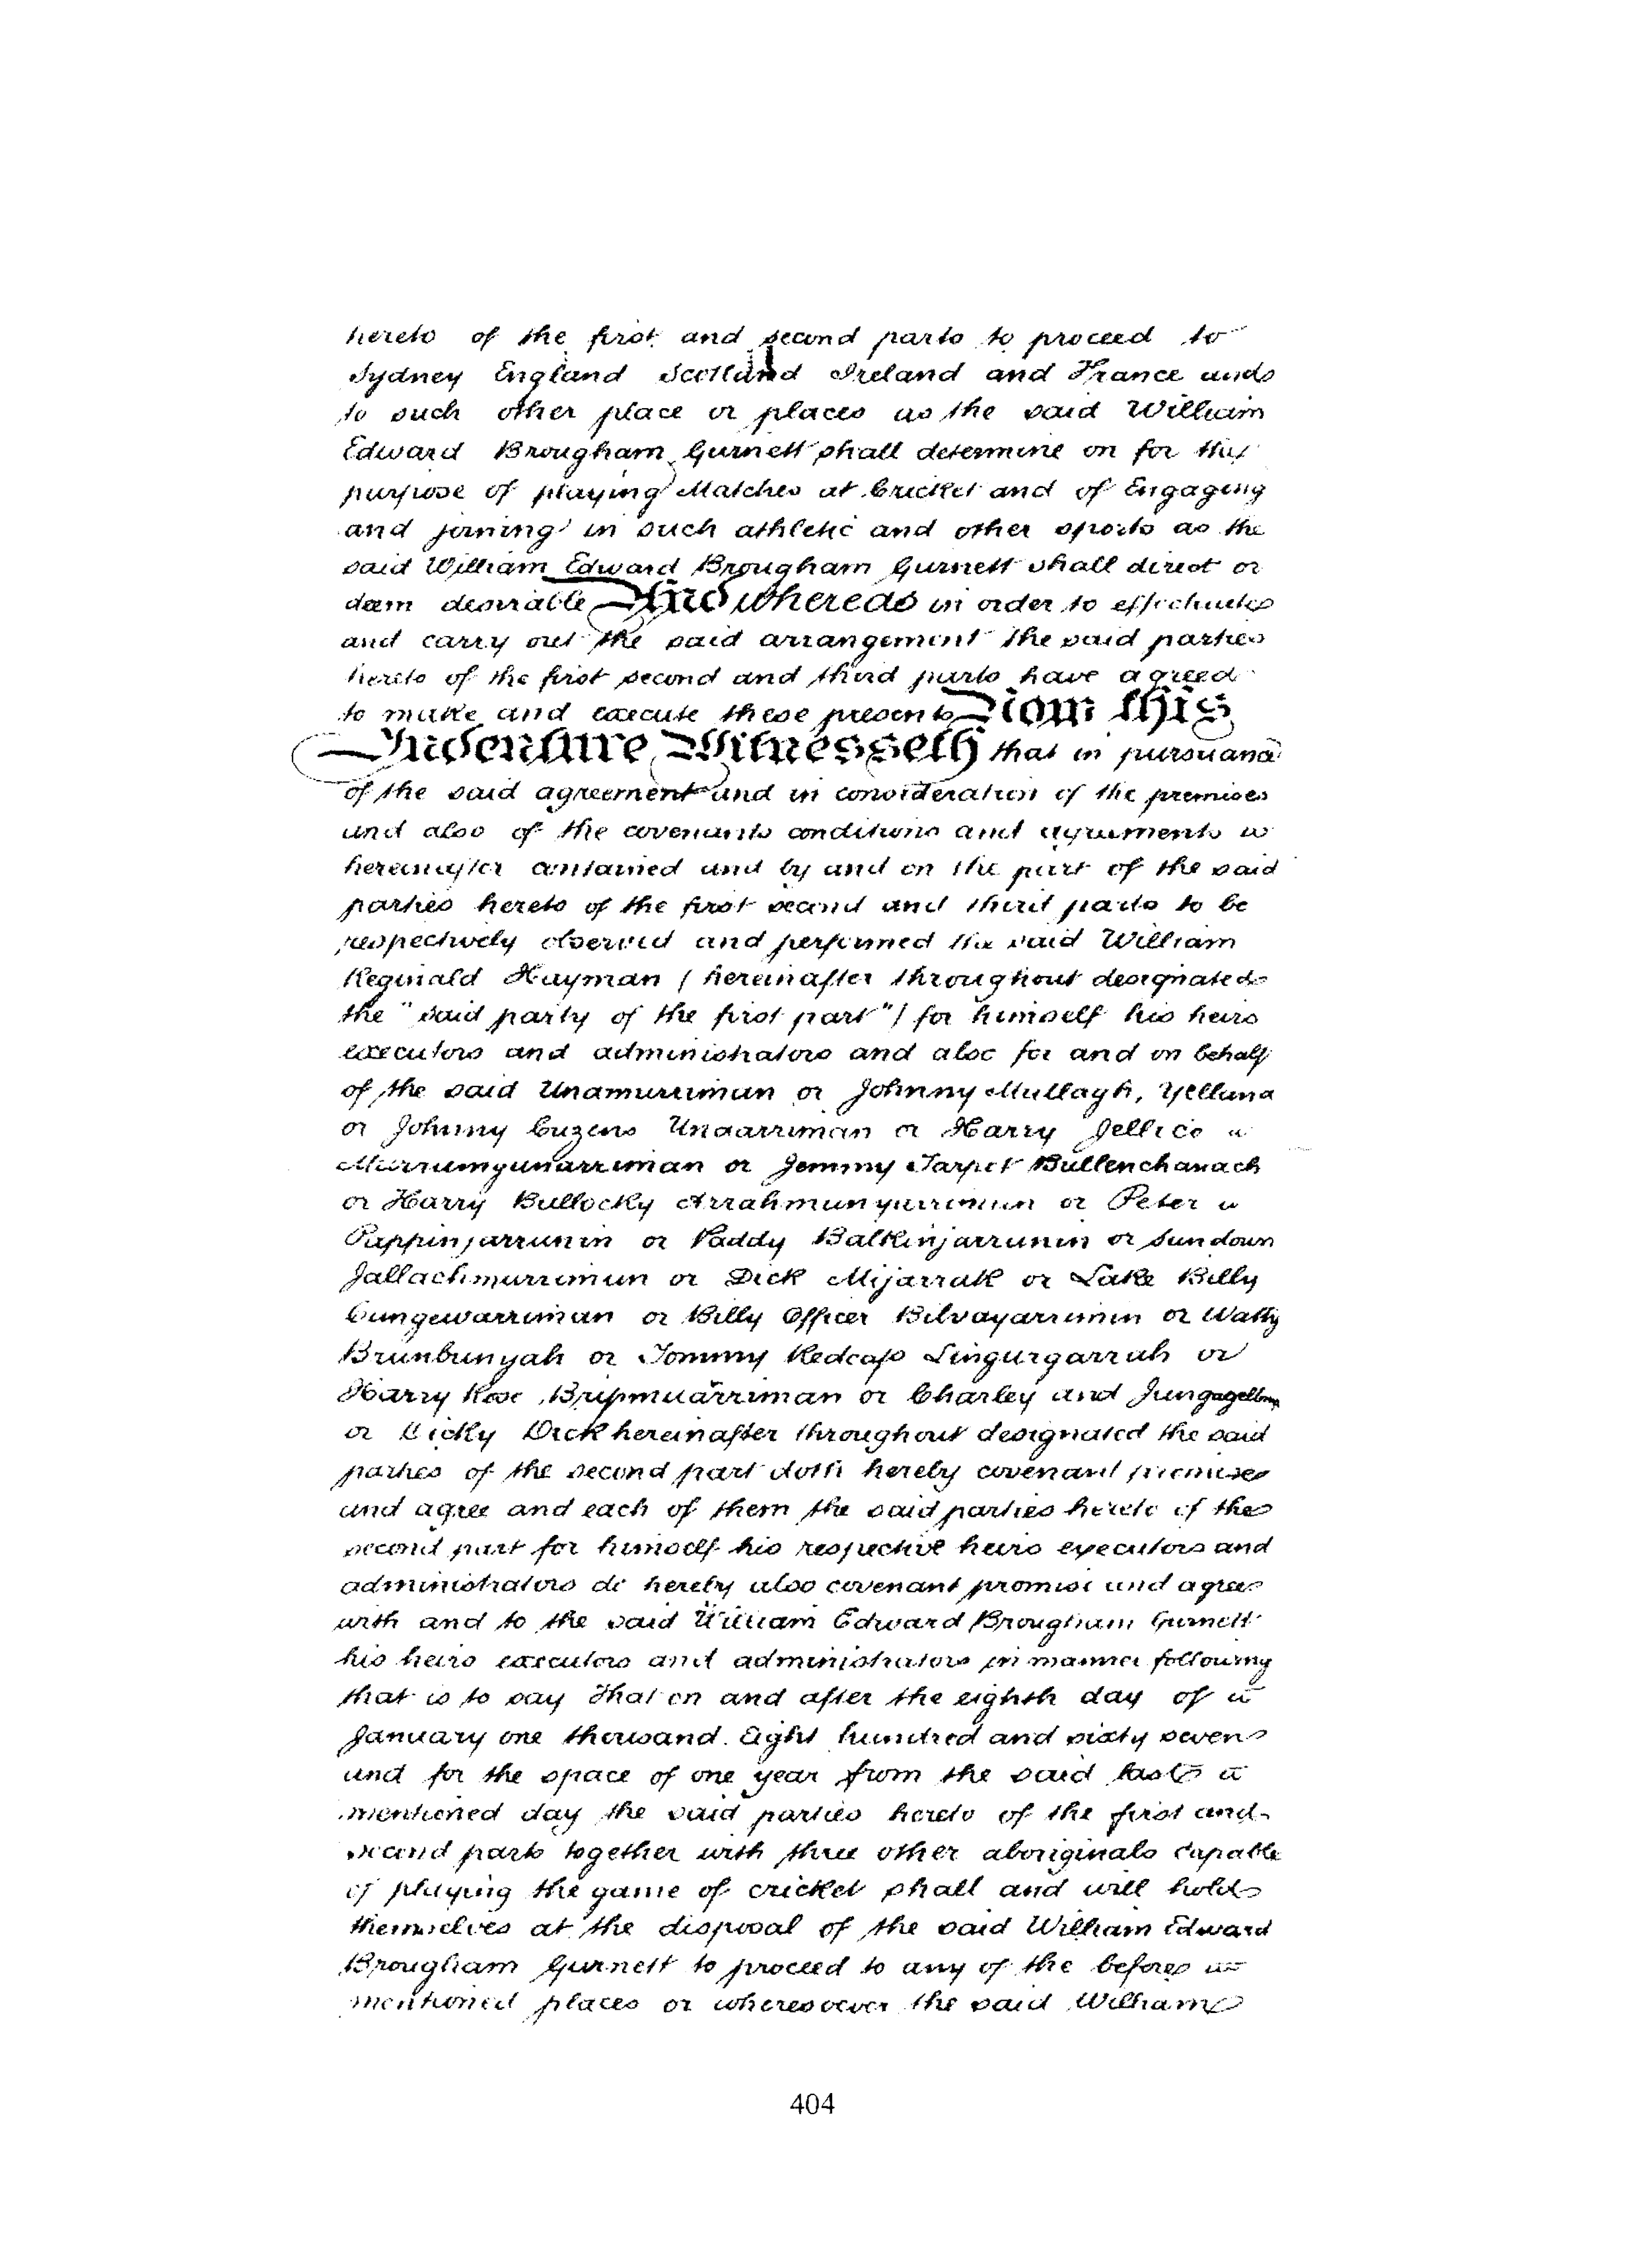 hereto of the first and second parts to proceed to
Sydney England Scotland Ireland and France and
to such other place or places as the said William
Edward Brougham Gurnett shall determine on for the
purpose of playing Matches at Cricket and of Engaging
and joining in such athletic and other sports as the
said William Edward Brougham Gurnett shall direct or
deem desirable And whereas in order to effectuate
and carry out the said arrangement the said parties
hereto of the first second and third parts have agreed
to make and execute these presents Now this
Indenture Witnesseth that in pursuance
of the said agreement and in consideration of the premises
and also of the covenants conditions and agreements
hereinafter contained and by and on the part of the said
parties hereto of the first second and third parts to be
respectively observed and performed the said William
Reginald Hayman (hereinafter throughout designated
the "said party of the first part") for himself his heirs
executors and administrators and also for and on behalf
of the said Unamurriman or Johnny Mullagh, Yellana
or Johnny Cuzens Unaarriman or Harry Jellico
Murrumgunarriman or Jemmy Tarpot Bullenchanach
or Harry Bullocky Arrahmunyarrimun or Peter
Pappinjarrunin or Paddy Balkinjarrunin or Sundown
Jallachmurrimun or Dick Mijarrak or Lake Billy
Cungewarriman or Billy Officer Bilvayarrimin or Watty
Brunbunyah or Tommy Redcap Lingurgarrah or
Harry Rose Bripmuarriman or Charley and Jungagellmn
or Dicky Dick hereinafter throughout designated the said
parties of the second part doth hereby covenant promise
and agree and each of them the said parties hereto of the
second part for himself his respective heirs executors and
administrators do hereby also covenant promise and agree
with and to the said William Edward Brougham Gurnett
his heirs executors and administrators in manner following
that is to say That on and after the eighth day of
January one thousand. Eight hundred and sixty seven
and for the space of one year from the said last
mentioned day the said parties hereto of the first and
second parts together with three other aboriginals capable
of playing the game of cricket shall and will hold
themselves at the disposal of the said William Edward
Brougham Gurnett to proceed to any of the before
mentioned places or wheresoever the said William
404